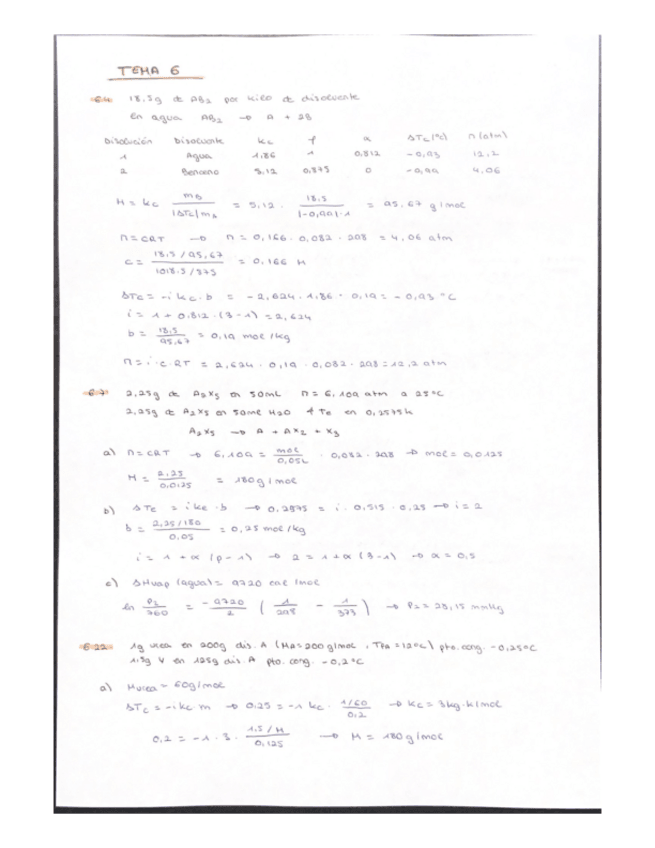 TEMA 6
6.4 18,5g de AB2 por kilo de disolvente
en agua AB2 → A + 2B
Disolución Disolvente Kc ρ α ΔTc (°C) Π (atm)
1 Agua 1,86 1 0,812 -0,93 12,2
2 Benceno 5,12 0,875 0 -0,99 4,06
M = Kc mB / |ΔTc| mA = 5,12 · 18,5 / |-0,99|·1 = 95,67 g/mol
Π = CRT → Π = 0,166 · 0,082 · 298 = 4,06 atm
C = 18,5/95,67 / 1018,5/875 = 0,166 M
ΔTc = -i Kc · b = -2,624 · 1,86 · 0,19 = -0,93 °C
i = 1 + 0,812 · (3-1) = 2,624
b = 18,5 / 95,67 = 0,19 mol/kg
Π = i·C·RT = 2,624 · 0,19 · 0,082 · 298 = 12,2 atm
6.7 2,25g de A2X5 en 50mL Π = 6,109 atm a 25°C
2,25g de A2X5 en 50mL H2O ↑Te en 0,2575K
A2X5 → A + AX2 + X3
a) Π = CRT → 6,109 = mol / 0,05L · 0,082 · 298 → mol = 0,0125
M = 2,25 / 0,0125 = 180 g/mol
b) ΔTe = i Ke · b → 0,2575 = i · 0,515 · 0,25 → i = 2
b = 2,25/180 / 0,05 = 0,25 mol/kg
i = 1 + α (ρ-1) → 2 = 1 + α (3-1) → α = 0,5
c) ΔHvap (agua) = 9720 cal/mol
ln P2/760 = -9720/2 ( 1/298 - 1/373 ) → P2 = 23,15 mmHg
6.22 1g urea en 200g dis. A (MA = 200 g/mol, TfA = 12°C), pto. cong. -0,25°C
1,5g V en 125g dis. A pto. cong. -0,2°C
a) Murea = 60g/mol
ΔTc = -i Kc m → 0,25 = -1 Kc · 1/60 / 0,2 → Kc = 3 kg·K/mol
0,2 = -1 · 3 · 1,5/M / 0,125 → M = 180 g/mol